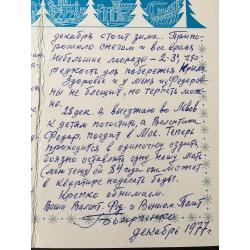 декабря стоит зима. Припо-
рошило снегом и все время
небольшие морозы - 2-3°, что
редкость для побережья Крыма.
Здоровье и у меня и у Федоровны
не блещит, но терпеть мож-
но.
28 дек. я выезжаю во Львов
к детям погостить, а Валентина
Федор. поедит в Мос. Теперь
приходится в одиночку ездить
боязно оставлять одну нашу мать
ей 84 года она может
в квартире наделать беды.
Крепко обнимаем
Ваши Валент. Фед. и
декабрь 1977г.